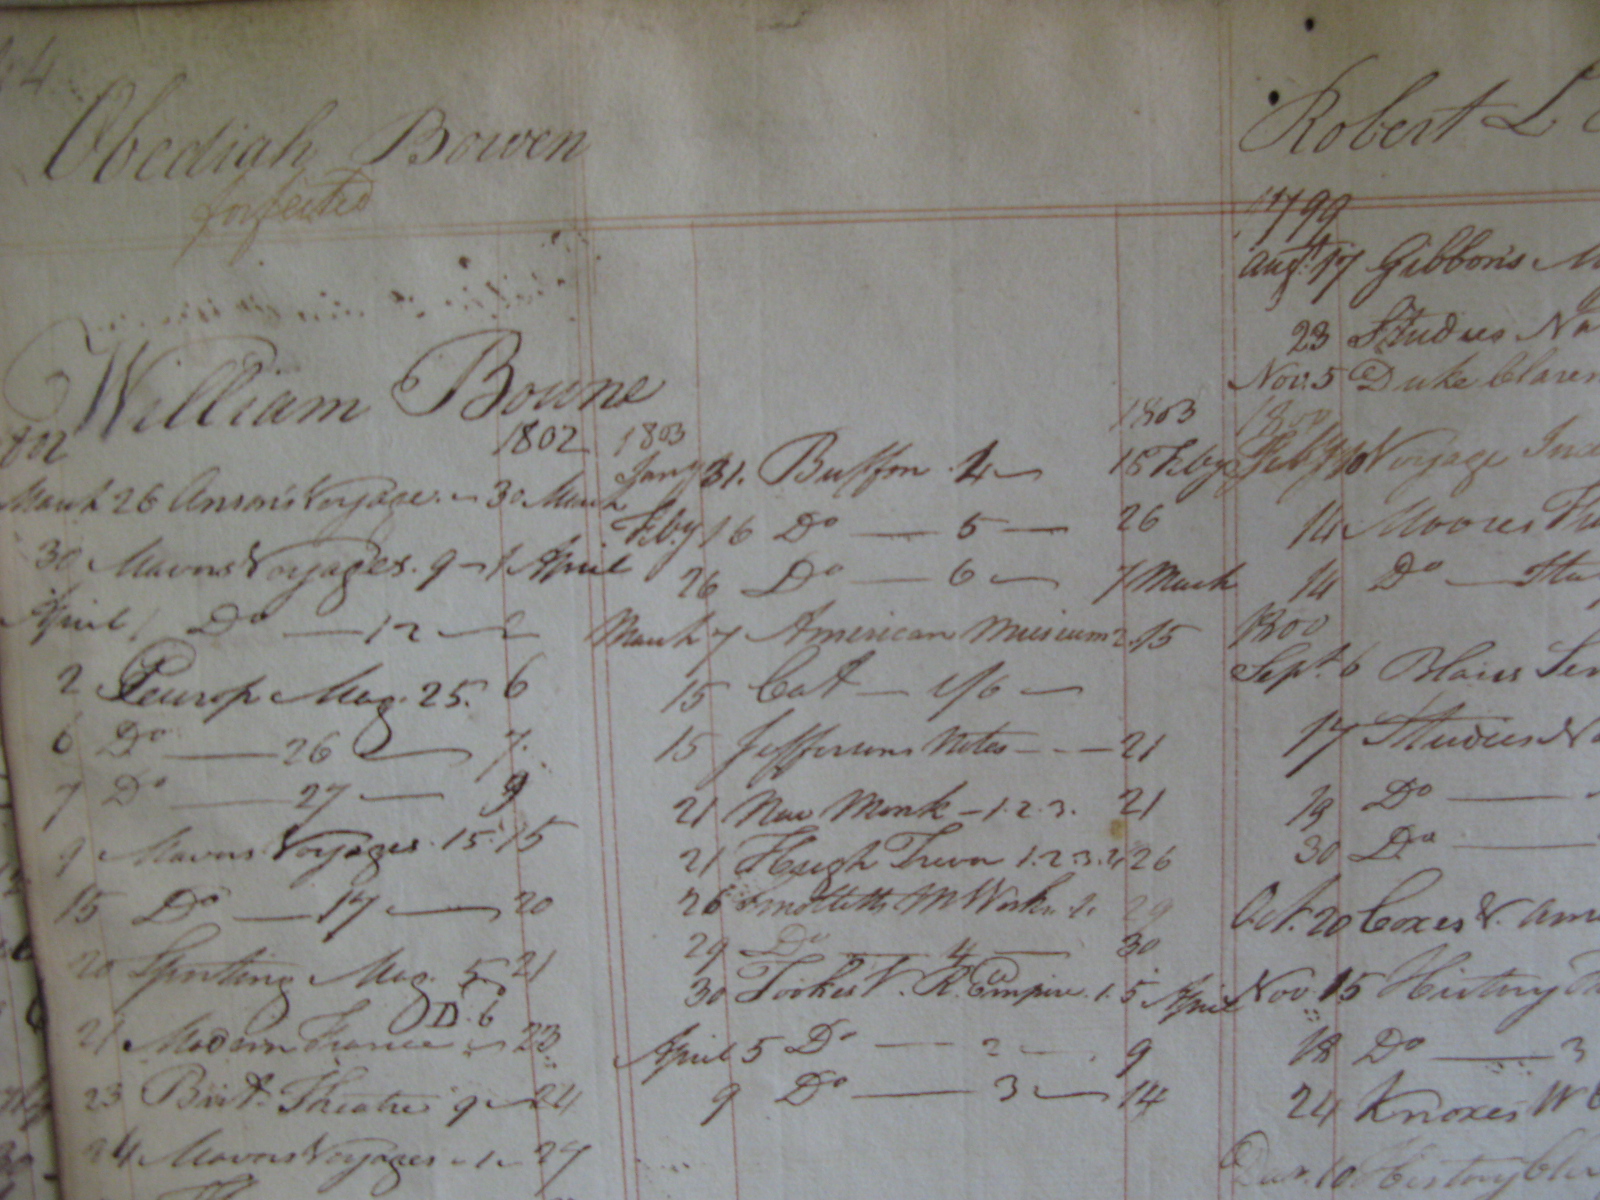 Obediah Bowen
forfeited
William Bowne
1802
March 26 Ansons Voyage. 30 March
30 Mavors Voyages. 9 1 April
April 1 Do 12 2
2 Europ Mag. 25. 6
6 Do 26 7.
7 Do 27 9
9 Mavors Voyages. 15. 15
15 Do 17 20
20 Sporting Mag. 5 21
D. 6
21 Modern France 23
23 Brit. Theatre 9 24
24 Mavors Voyages 1 27
1803 1803
Jany 31. Buffon 4 15 Feby
Feby 16 Do 5 26
26 Do 6 7 March
March 7 American Museum 2. 15
15 Cat 1/6
15 Jeffersons Notes 21
21 New Monk 1. 2. 3. 21
21 Hugh Trevor 1. 2. 3. 4 26
26 Smolletts M Works 29
29 Do 4 30
30 Tookes V. R. Empire. 1. 5 April
April 5 Do 2 9
9 Do 3 14
Robert L
1799
Augt. 17 Gibbons
23 Studies Na
Nov. 5 Duke Claren
1800
Feby 10 Voyage
14 Moores
14 Do
1800
Sept. 6 Blairs Ser
17 Studies Na
19 Do
30 Do
Oct. 20 Coxes V. Am
Nov. 15 History
18 Do 3
24 Knoxes W
10 History